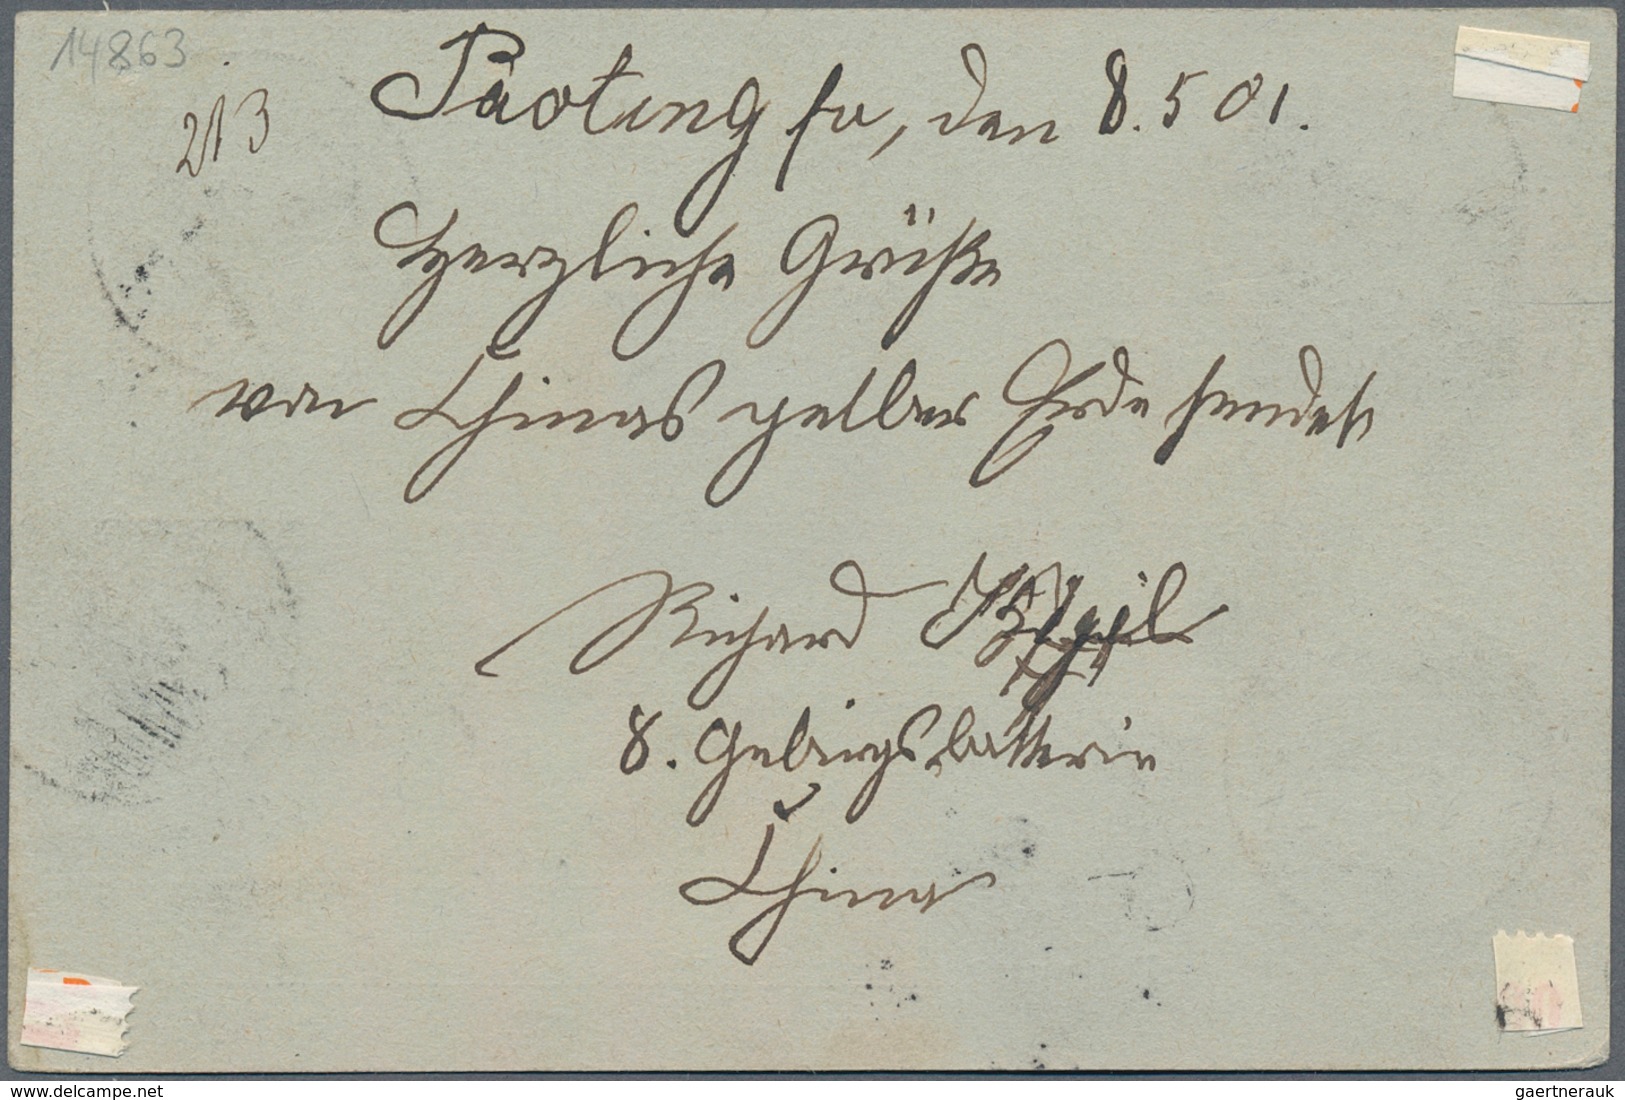 14863
213
Paoting fu, den 8.5 01.
Herzliche Grüße
von Chinas gelber Erde sendet
Richard
8. Gebirgsbatterie
China
www.delcampe.net
gaertnerauk